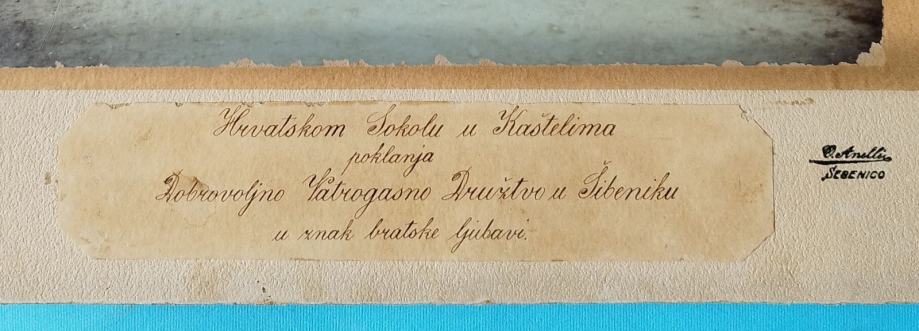 Hrvatskom Sokolu u Kaštelima
poklanja
Dobrovoljno Vatrogasno Družtvo u Šibeniku
u znak bratske ljubavi.
ŠEBENICO